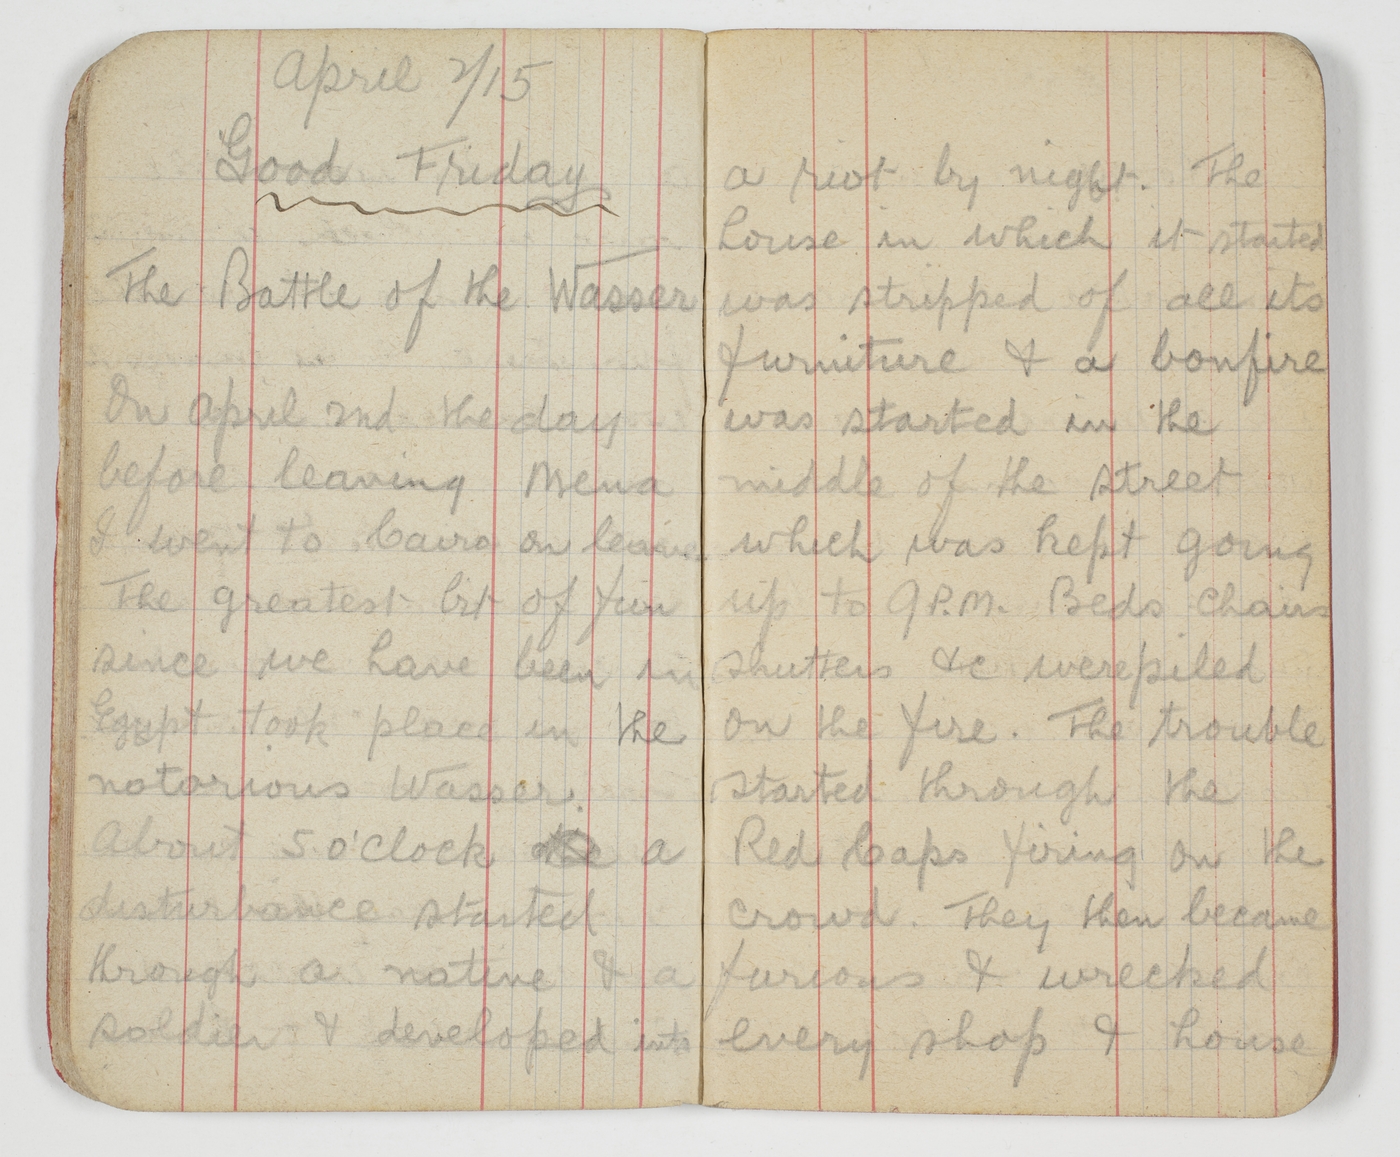 April 2/15
Good Friday
The Battle of the Wasser
On April 2nd the day
before leaving Mena
I went to Cairo on leave.
The greatest bit of fun
since we have been in
Egypt took place in the
notorious Wasser.
About 5 o'clock a
disturbance started
through a native & a
soldier & developed into
a riot by night. The
house in which it started
was stripped of all its
furniture & a bonfire
was started in the
middle of the street
which was kept going
up to 9 P.M. Beds chairs
shutters &c were piled
on the fire. The trouble
started through the
Red Caps firing on the
crowd. They then became
furious & wrecked
every shop & house